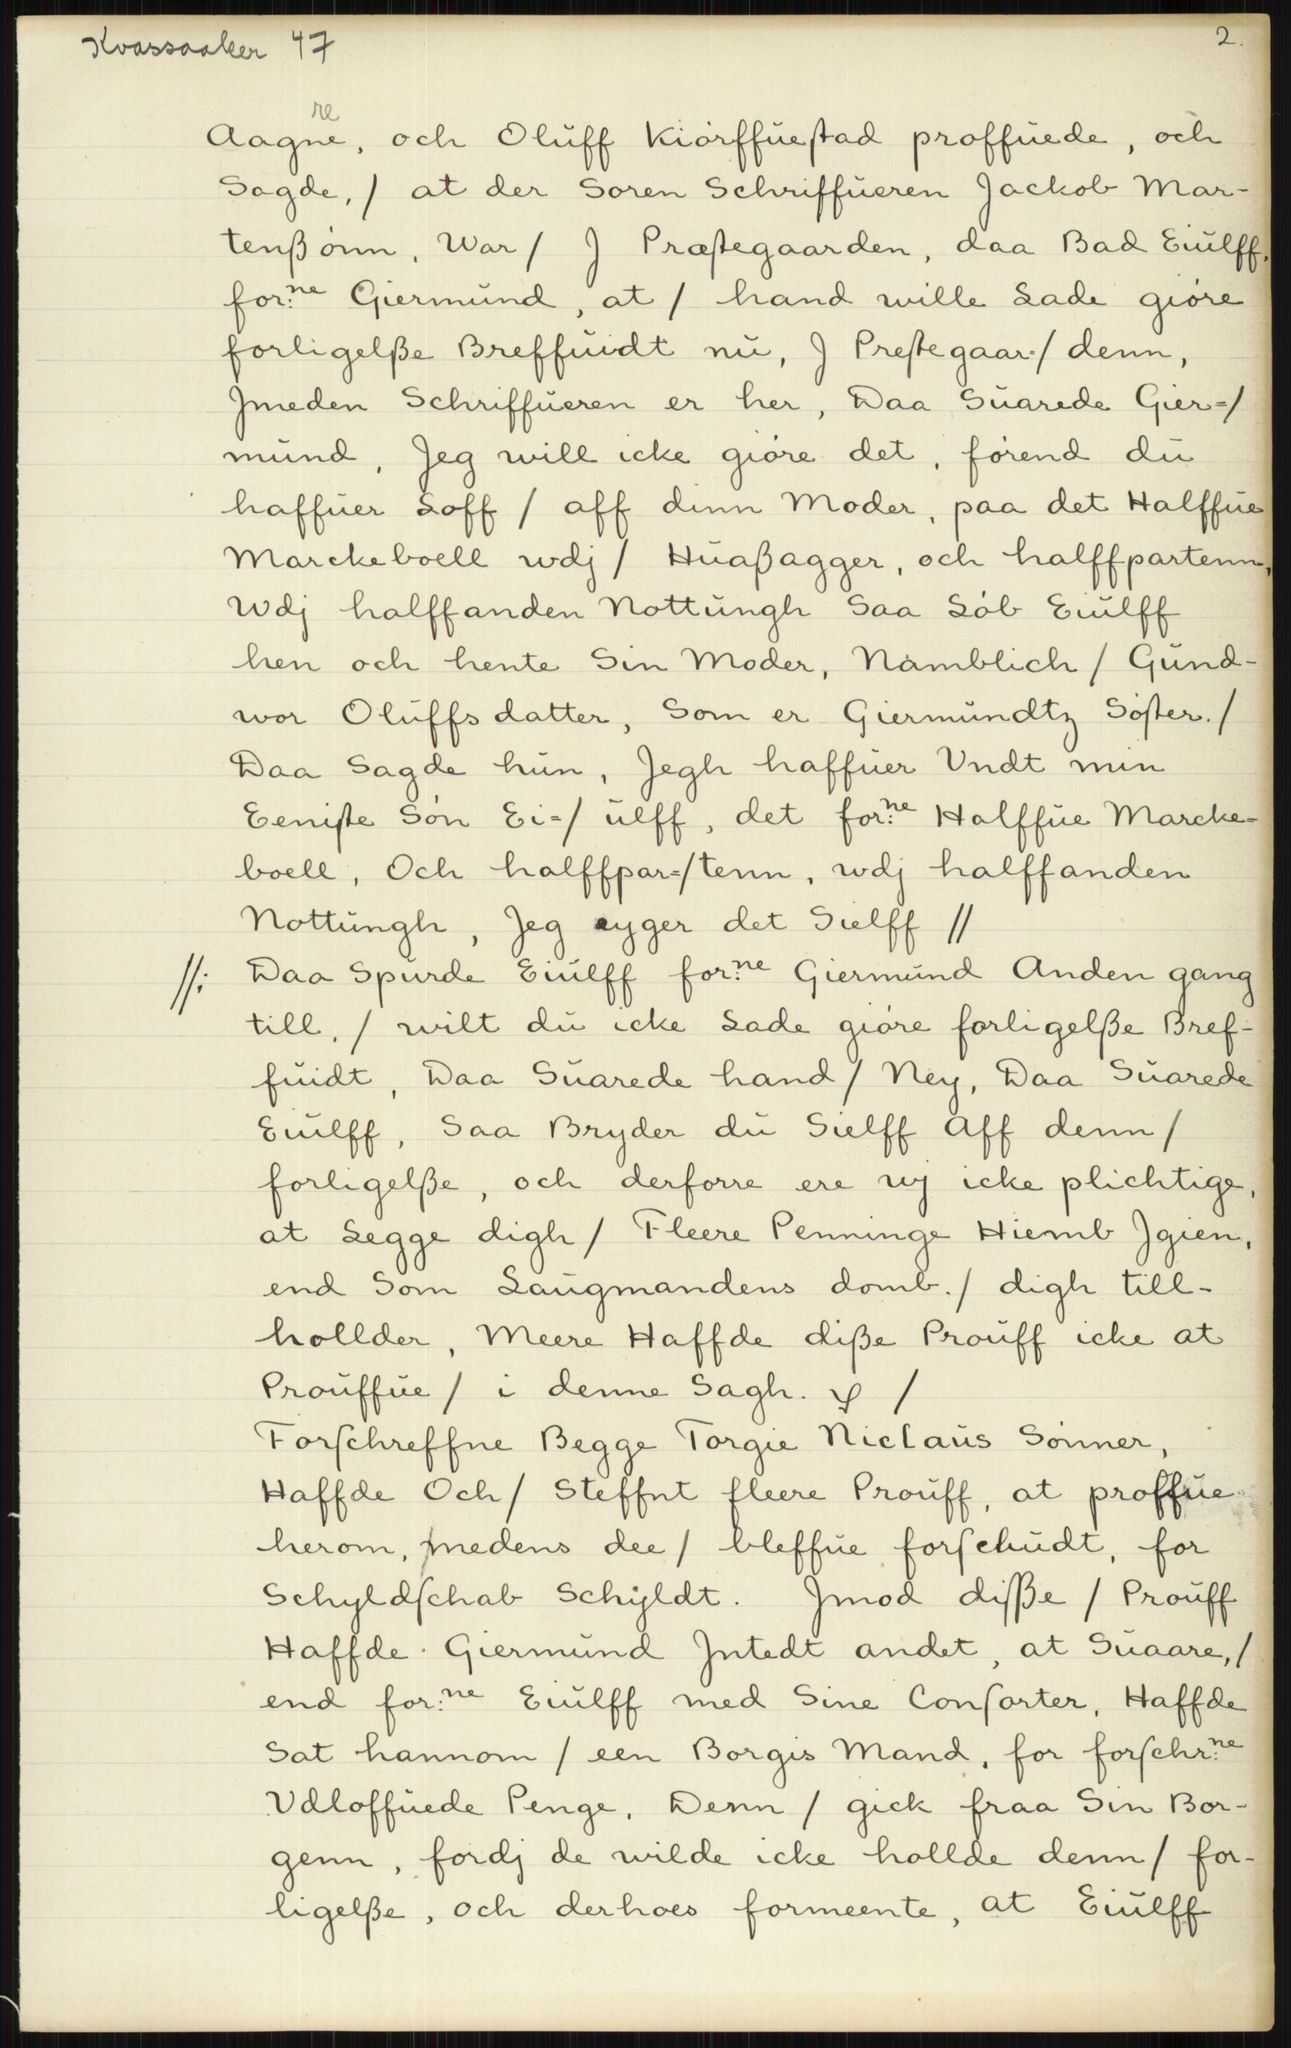 Kvassaaker 47
2.
re
Aagne, och Oluff Kiørffuestad proffuede, och
Sagde, / at der Soren Schriffueren Jackob Mar-
tenßønn, War / J Præstegaarden, daa Bad Eiulff,
for:ne Giermund, at / hand wille Lade giøre
forligelße Breffuidt nu, J Prestegaar-/ denn,
Jmeden Schriffueren er her, Daa Suarede Gier=/
mund, Jeg will icke giøre det, førend du
haffuer Loff / aff dinn Moder, paa det Halffue
Marckeboell wdj / Huaßagger, och halffpartenn,
Wdj halffanden Nottungh Saa Løb Eiulff
hen och hente Sin Moder, Namblich / Gund-
wor Oluffsdatter, Som er Giermundtz Søster. /
Daa Sagde hun, Jegh haffuer Vndt min
Eeniste Søn Ei=/ ulff, det for:ne Halffue Marcke-
boell, Och halffpar=/tenn, wdj halffanden
Nottungh, Jeg eyger det Sielff //
//: Daa Spurde Eiulff for:ne Giermund Anden gang
till, / wilt du icke Lade giøre forligelße Bref-
fuidt, Daa Suarede hand / Ney, Daa Suarede
Eiulff, Saa Bryder du Sielff Aff denn /
forligelße, och derforre ere wj icke plichtige,
at Legge digh / Fleere Penninge Hiemb Jgien,
end Som Laugmandens domb. / digh till-
hollder, Meere Haffde diße Prouff icke at
Prouffue / i denne Sagh. /
Forschreffne Begge Torgie Niclaus Sønner,
Haffde Och / Steffnt fleere Prouff, at proffue
herom, medens dee / bleffue forschudt, for
Schyldschab Schyldt. Jmod disße / Prouff
Haffde Giermund Jntedt andet, at Suaare, /
end for:ne Eiulff med Sine Consorter, Haffde
Sat hannom / een Borgis Mand, for forschr:ne
Vdloffuede Penge, Denn / gick fraa Sin Bor-
genn, fordj de wilde icke hollde denn / for-
ligelße, och derhoes formeente, at Eiulff